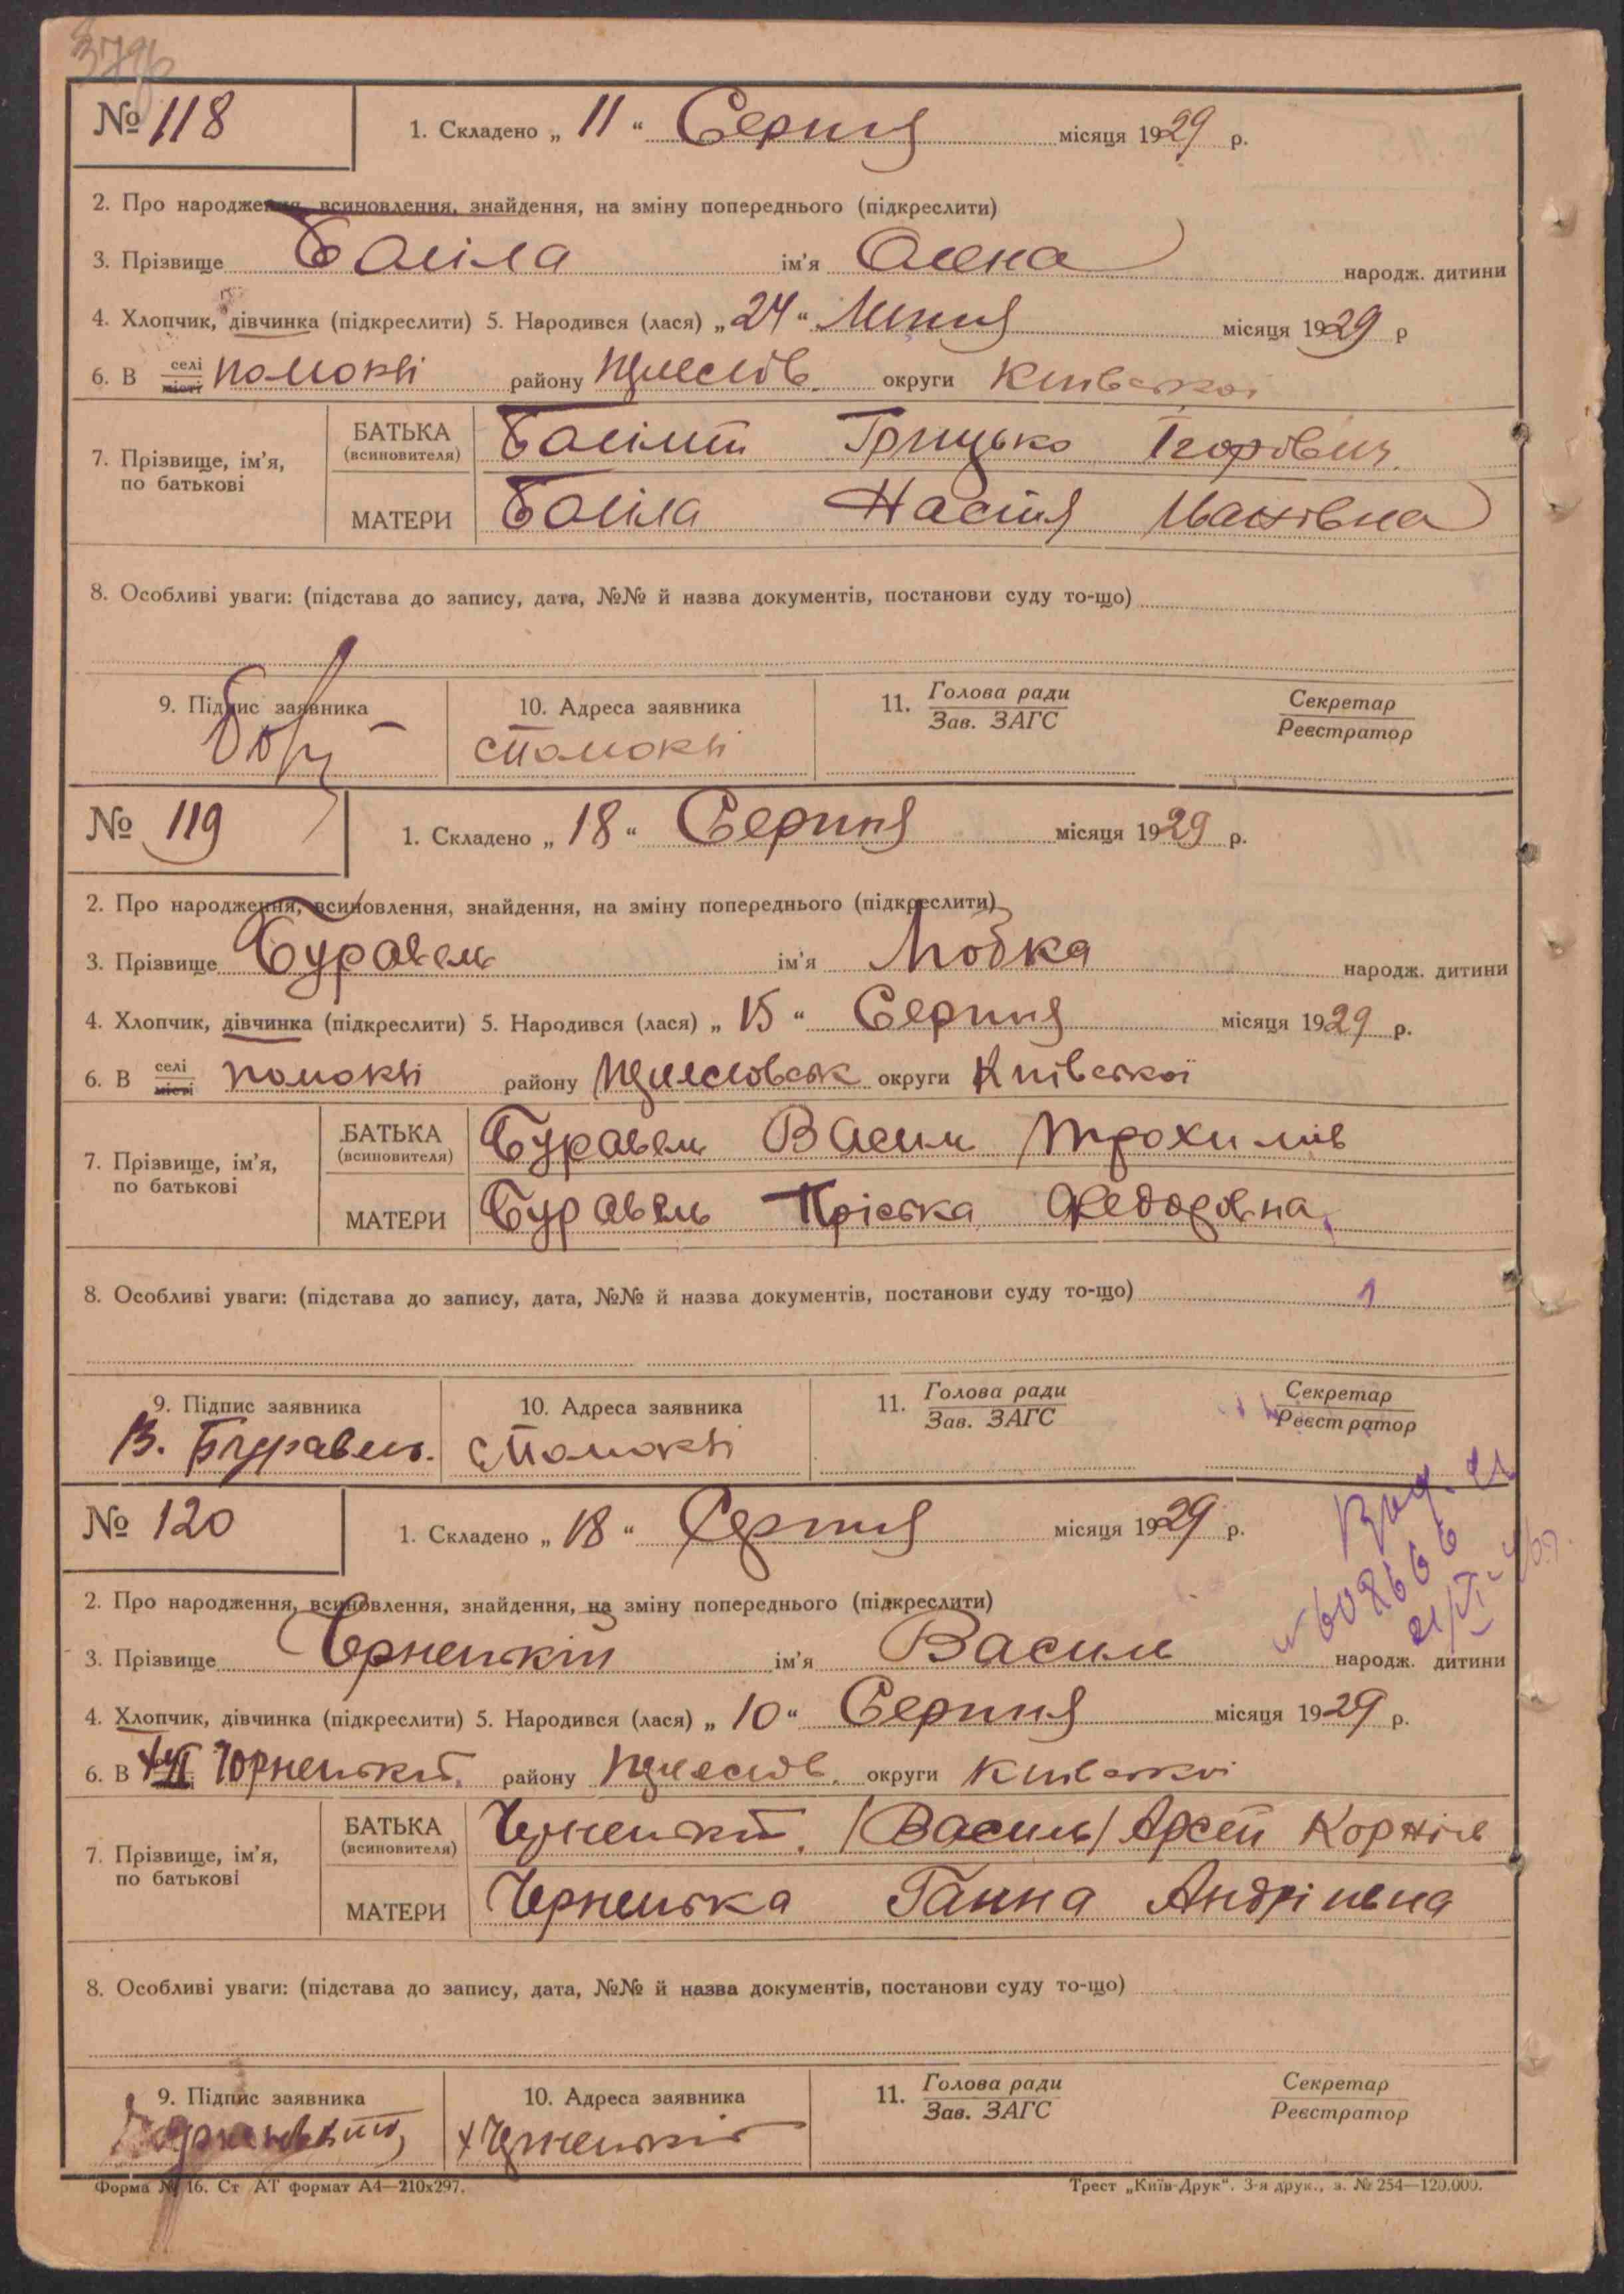 № 118
1. Складено „ 11 “ Серпня місяця 1929 р.
2. Про народження, всиновлення, знайдення, на зміну попереднього (підкреслити)
3. Прізвище ім'я Олена народж. дитини
4. Хлопчик, дівчинка (підкреслити) 5. Народився (лася) „ 24 “ Липня місяця 1929 р
6. В селі місті Помоклі району округи Київської
7. Прізвище, ім'я, по батькові
БАТЬКА (всиновителя) Грицько Ігорович
МАТЕРИ Настя Иванівна
8. Особливі уваги: (підстава до запису, дата, №№ й назва документів, постанови суду то-що)
9. Підпис заявника 10. Адреса заявника 11. Голова ради Зав. ЗАГС Секретар Реєстратор
с Помоклі
№ 119
1. Складено „ 18 “ Серпня місяця 1929 р.
2. Про народження, всиновлення, знайдення, на зміну попереднього (підкреслити)
3. Прізвище Буравель ім'я Любка народж. дитини
4. Хлопчик, дівчинка (підкреслити) 5. Народився (лася) „ 15 “ Серпня місяця 1929 р.
6. В селі місті Помоклі району округи Київської
7. Прізвище, ім'я, по батькові
БАТЬКА (всиновителя) Буравель Василь Трохимів
МАТЕРИ Буравель Пріська Федоровна
8. Особливі уваги: (підстава до запису, дата, №№ й назва документів, постанови суду то-що)
9. Підпис заявника 10. Адреса заявника 11. Голова ради Зав. ЗАГС Секретар Реєстратор
В. Буравель. с Помоклі
№ 120
1. Складено „ 18 “ Серпня місяця 1929 р.
2. Про народження, всиновлення, знайдення, на зміну попереднього (підкреслити)
3. Прізвище ім'я Василь народж. дитини
4. Хлопчик, дівчинка (підкреслити) 5. Народився (лася) „ 10 “ Серпня місяця 1929 р.
6. В хут району округи Київської
7. Прізвище, ім'я, по батькові
БАТЬКА (всиновителя) /Василь/ Арсей Корнів
МАТЕРИ Чернецька Ганна Андрієвна
8. Особливі уваги: (підстава до запису, дата, №№ й назва документів, постанови суду то-що)
9. Підпис заявника 10. Адреса заявника 11. Голова ради Зав. ЗАГС Секретар Реєстратор
Форма № 16. Ст АТ формат А4—210х297. Трест „Київ-Друк“. 3-я друк., з. № 254—120.000.